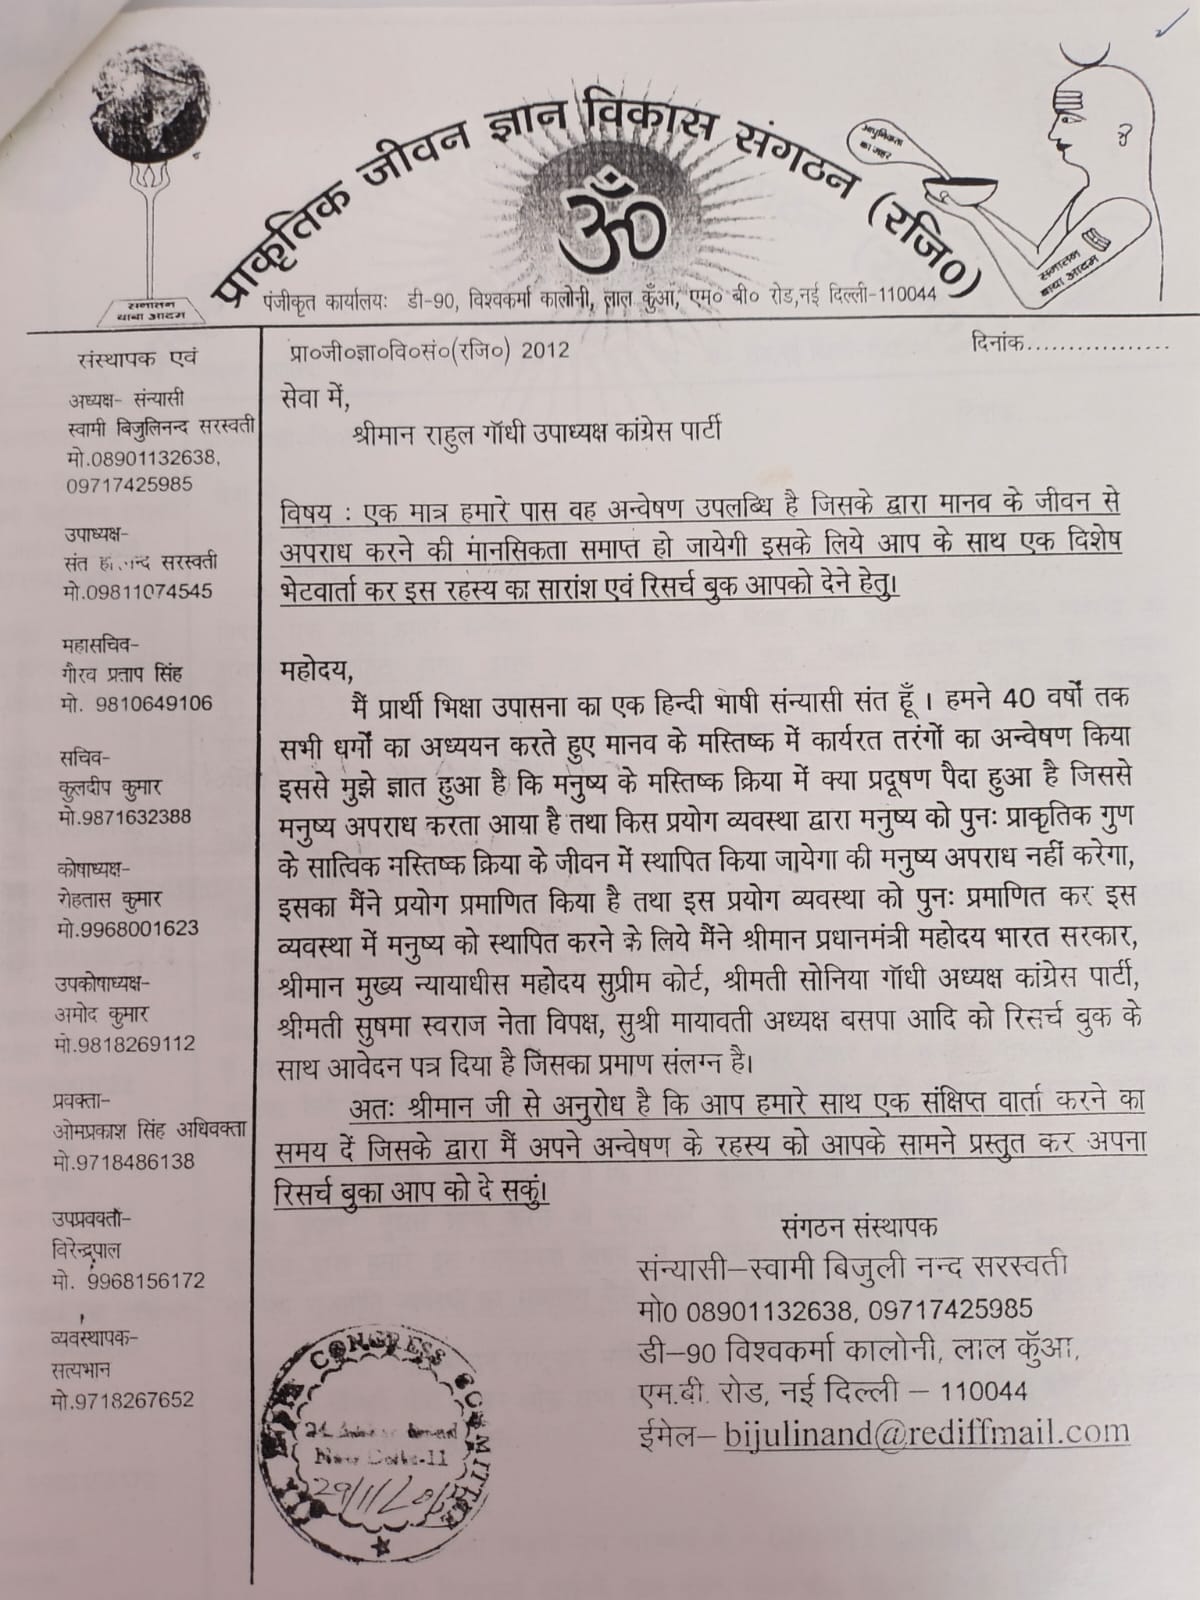 प्राकृतिक जीवन ज्ञान विकास संगठन (रजि०)
आधुनिकता
का जहर
सनातन
बाबा आदम
सनातन
बाबा आदम
पंजीकृत कार्यालयः डी-90, विश्वकर्मा कालोनी, लाल कुँआ, एम० बी० रोड,नई दिल्ली-110044
संस्थापक एवं
अध्यक्ष- संन्यासी
स्वामी बिजुलिनन्द सरस्वती
मो.08901132638,
09717425985
उपाध्यक्ष-
संत सरस्वती
मो.09811074545
महासचिव-
गौरव प्रताप सिंह
मो. 9810649106
सचिव-
कुलदीप कुमार
मो.9871632388
कोषाध्यक्ष-
रोहतास कुमार
मो.9968001623
उपकोषाध्यक्ष-
अमोद कुमार
मो.9818269112
प्रवक्ता-
ओमप्रकाश सिंह अधिवक्ता
मो.9718486138
उपप्रवक्ता-
विरेन्द्रपाल
मो. 9968156172
व्यवस्थापक-
सत्यभान
मो.9718267652
प्रा०जी०ज्ञा०वि०सं०(रजि०) 2012
दिनांक.................
सेवा में,
श्रीमान राहुल गॉधी उपाध्यक्ष कांग्रेस पार्टी
विषय : एक मात्र हमारे पास वह अन्वेषण उपलब्धि है जिसके द्वारा मानव के जीवन से
अपराध करने की मानसिकता समाप्त हो जायेगी इसके लिये आप के साथ एक विशेष
भेटवार्ता कर इस रहस्य का सारांश एवं रिसर्च बुक आपको देने हेतु।
महोदय,
मैं प्रार्थी भिक्षा उपासना का एक हिन्दी भाषी संन्यासी संत हूँ । हमने 40 वर्षो तक
सभी धर्मो का अध्ययन करते हुए मानव के मस्तिष्क में कार्यरत तरंगों का अन्वेषण किया
इससे मुझे ज्ञात हुआ है कि मनुष्य के मस्तिष्क क्रिया में क्या प्रदूषण पैदा हुआ है जिससे
मनुष्य अपराध करता आया है तथा किस प्रयोग व्यवस्था द्वारा मनुष्य को पुनः प्राकृतिक गुण
के सात्विक मस्तिष्क क्रिया के जीवन में स्थापित किया जायेगा की मनुष्य अपराध नहीं करेगा,
इसका मैंने प्रयोग प्रमाणित किया है तथा इस प्रयोग व्यवस्था को पुनः प्रमाणित कर इस
व्यवस्था में मनुष्य को स्थापित करने के लिये मैंने श्रीमान प्रधानमंत्री महोदय भारत सरकार,
श्रीमान मुख्य न्यायाधीस महोदय सुप्रीम कोर्ट, श्रीमती सोनिया गॉधी अध्यक्ष कांग्रेस पार्टी,
श्रीमती सुषमा स्वराज नेता विपक्ष, सुश्री मायावती अध्यक्ष बसपा आदि को रिसर्च बुक के
साथ आवेदन पत्र दिया है जिसका प्रमाण संलग्न है।
अतः श्रीमान जी से अनुरोध है कि आप हमारे साथ एक संक्षिप्त वार्ता करने का
समय दें जिसके द्वारा मैं अपने अन्वेषण के रहस्य को आपके सामने प्रस्तुत कर अपना
रिसर्च बुका आप को दे सकुं।
संगठन संस्थापक
संन्यासी–स्वामी बिजुली नन्द सरस्वती
मो0 08901132638, 09717425985
डी–90 विश्वकर्मा कालोनी, लाल कुँआ,
एम.बी. रोड, नई दिल्ली – 110044
ईमेल– bijulinand@rediffmail.com
CONGRESS COMMITTEE
New Delhi-11